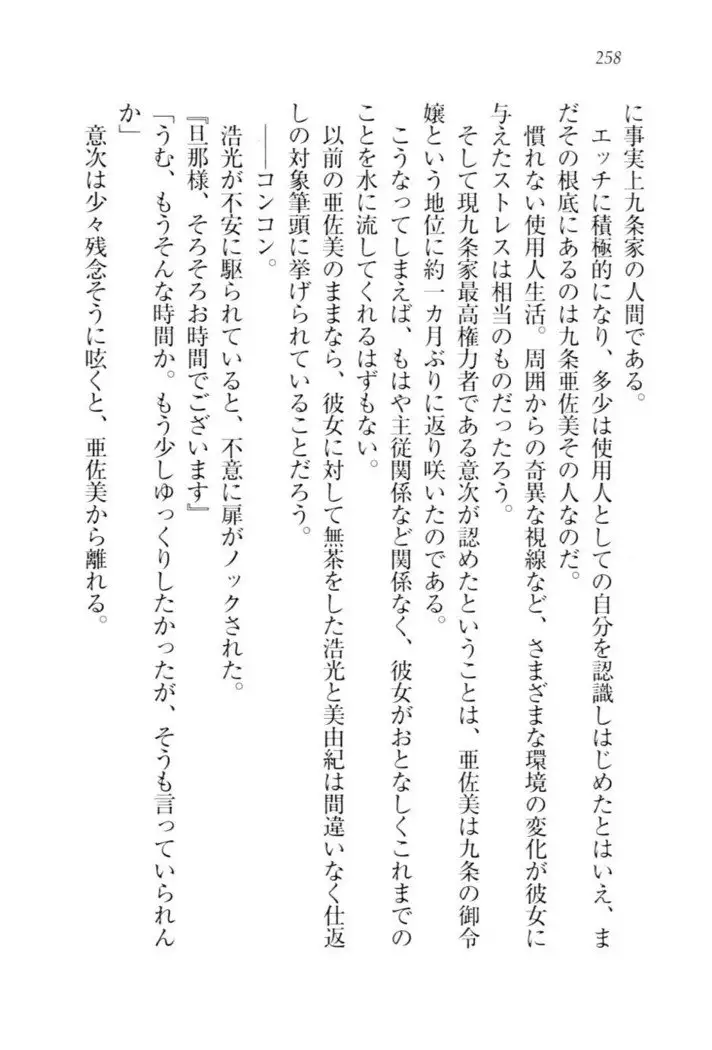 258
に事実上九条家の人間である。
エッチに積極的になり、多少は使用人としての自分を認識しはじめたとはいえ、ま
だその根底にあるのは九条亜佐美その人なのだ。
慣れない使用人生活。周囲からの奇異な視線など、さまざまな環境の変化が彼女に
与えたストレスは相当のものだったろう。
そして現九条家最高権力者である意次が認めたということは、亜佐美は九条の御令
嬢という地位に約一カ月ぶりに返り咲いたのである。
こうなってしまえば、もはや主従関係など関係なく、彼女がおとなしくこれまでの
ことを水に流してくれるはずもない。
以前の亜佐美のままなら、彼女に対して無茶をした浩光と美由紀は間違いなく仕返
しの対象筆頭に挙げられていることだろう。
――コンコン。
浩光が不安に駆られていると、不意に扉がノックされた。
『旦那様、そろそろお時間でございます』
「うむ、もうそんな時間か。もう少しゆっくりしたかったが、そうも言っていられん
か」
意次は少々残念そうに呟くと、亜佐美から離れる。